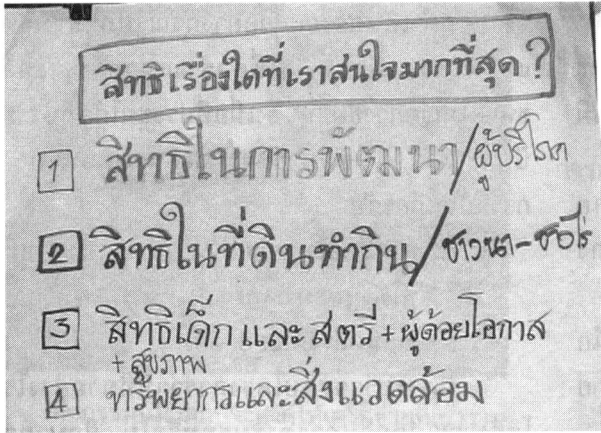 สิทธิเรื่องใดที่เราสนใจมากที่สุด?
1 สิทธิในการพัฒนา/ผู้บริโภค
2 สิทธิในที่ดินทำกิน/ชาวนา-ชาวไร่
3 สิทธิเด็ก และ สตรี + ผู้ด้อยโอกาส
+ สุขภาพ
4 ทรัพยากรและสิ่งแวดล้อม